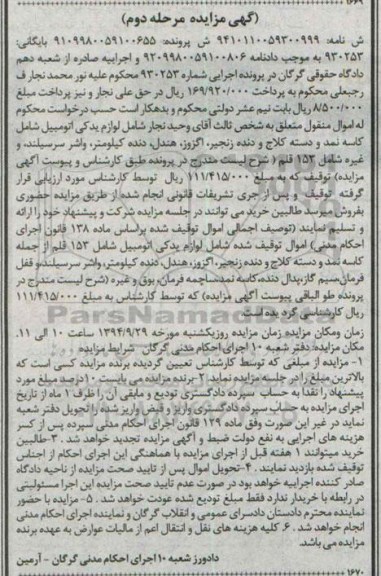 ۱۶۶۹
(گهی مزایده مرحله دوم)
ش نامه: ۹۴۱۰۱۱۰۰۵۹۳۰۰۹۹۹ ش پرونده: ۹۱۰۹۹۸۰۰۵۹۱۰۰۶۵۵ بایگانی:
۹۳۰۲۵۳ به موجب دادنامه ۹۲۰۹۹۸۰۰۵۹۱۰۰۸۰۶ و اجراییه صادره از شعبه دهم
دادگاه حقوقی گرگان در پرونده اجرایی شماره ۹۳۰۲۵۳ محکوم علیه نور محمد نجار ف
رجبعلی محکوم به پرداخت ۱۶۹/۹۲۰/۰۰۰ ریال در حق علی نجار و نیز پرداخت مبلغ
۸/۵۰۰/۰۰۰ ریال بابت نیم عشر دولتی محکوم و بدهکار است حسب درخواست محکوم
له اموال منقول متعلق به شخص ثالث آقای وحید نجار شامل لوازم یدکی اتومبیل شامل
کاسه نمد و دسته کلاج و دنده زنجیر، اگزوز، هندل، دنده کیلومتر، واشر سرسیلند، و
غیره شامل ۱۵۳ قلم ( شرح لیست مندرج در پرونده طبق کارشناس و پیوست آگهی
مزایده) توقیف که به مبلغ ۱۱۱/۴۱۵/۰۰۰ ریال توسط کارشناس مورد ارزیابی قرار
گرفته توقیف و پس از جری تشریفات قانونی انجام شده از طریق مزایده حضوری
بفروش میرسد طالبین خرید می توانند در جلسه مزایده شرکت و پیشنهاد خود را ارائه
و تسلیم نمایند (توصیف اجمالی اموال توقیف شده براساس ماده ۱۳۸ قانون اجرای
احکام مدنی) اموال توقیف شده شامل لوازم یدکی اتومبیل شامل ۱۵۳ قلم از جمله
کاسه نمد و دسته کلاج و دنده زنجیر، اگزوز، هندل، دنده کیلومتر، واشر سرسیلند و قفل
فرمان،سیم گاز،پدال دنده،کاسه نمدساچمه فرمان، بوق و غیره (شرح لیست مندرج در
پرونده طو الباقی پیوست آگهی مزایده) که توسط کارشناس به مبلغ ۱۱۱/۴۱۵/۰۰۰
ریال کارشناسی گردیده است.
زمان ومکان مزایده زمان مزایده روزیکشنبه مورخه ۱۳۹۴/۹/۲۹ ساعت ۱۰ الی ۱۱.
مکان مزایده: دفتر شعبه ۱۰ اجرای احکام مدنی گرگان شرایط مزایده
۱- مزایده از مبلغی که توسط کارشناس تعیین گردیده برنده مزایده کسی است که
بالاترین مبلغ را در جلسه مزایده نماید ۲- برنده مزایده می بایست ۱۰ درصد مبلغ مورد
پیشنهاد را نقدا به حساب سپرده دادگستری تودیع و مابقی آن را ظرف ۱ ماه از تاریخ
اجرای مزایده به حساب سپرده دادگستری واریز و قبض واریز شده را تحویل دفتر شعبه
نماید در غیر این صورت وفق ماده ۱۲۹ قانون اجرای احکام مدنی سپرده پس از کسر
هزینه های اجرایی به نفع دولت ضبط و آگهی مزایده تجدید خواهد شد . ۳-طالبین
خرید میتوانند ۱ هفته قبل از اجرای مزایده با هماهنگی این اجرای احکام از اجناس
توقیف شده بازدید نمایند . ۴-تحویل اموال پس از تایید صحت مزایده از ناحیه دادگاه
صادر کننده اجراییه خواهد بود در صورت عدم تایید صحت مزایده این اجرا مسئولیتی
در رابطه با خریدار ندارد فقط مبلغ تودیع شده عودت خواهد شد . ۵- مزایده با حضور
نماینده محترم دادستان دادسرای عمومی و انقلاب گرگان و نماینده اجرای احکام مدنی
انجام خواهد شد . ۶- کلیه هزینه های نقل و انتقال اعم از مالیات عوارض به عهده برنده
مزایده می باشد.
دادورز شعبه ۱۰ اجرای احکام مدنی گرگان - آرمین
۱۶۷۰